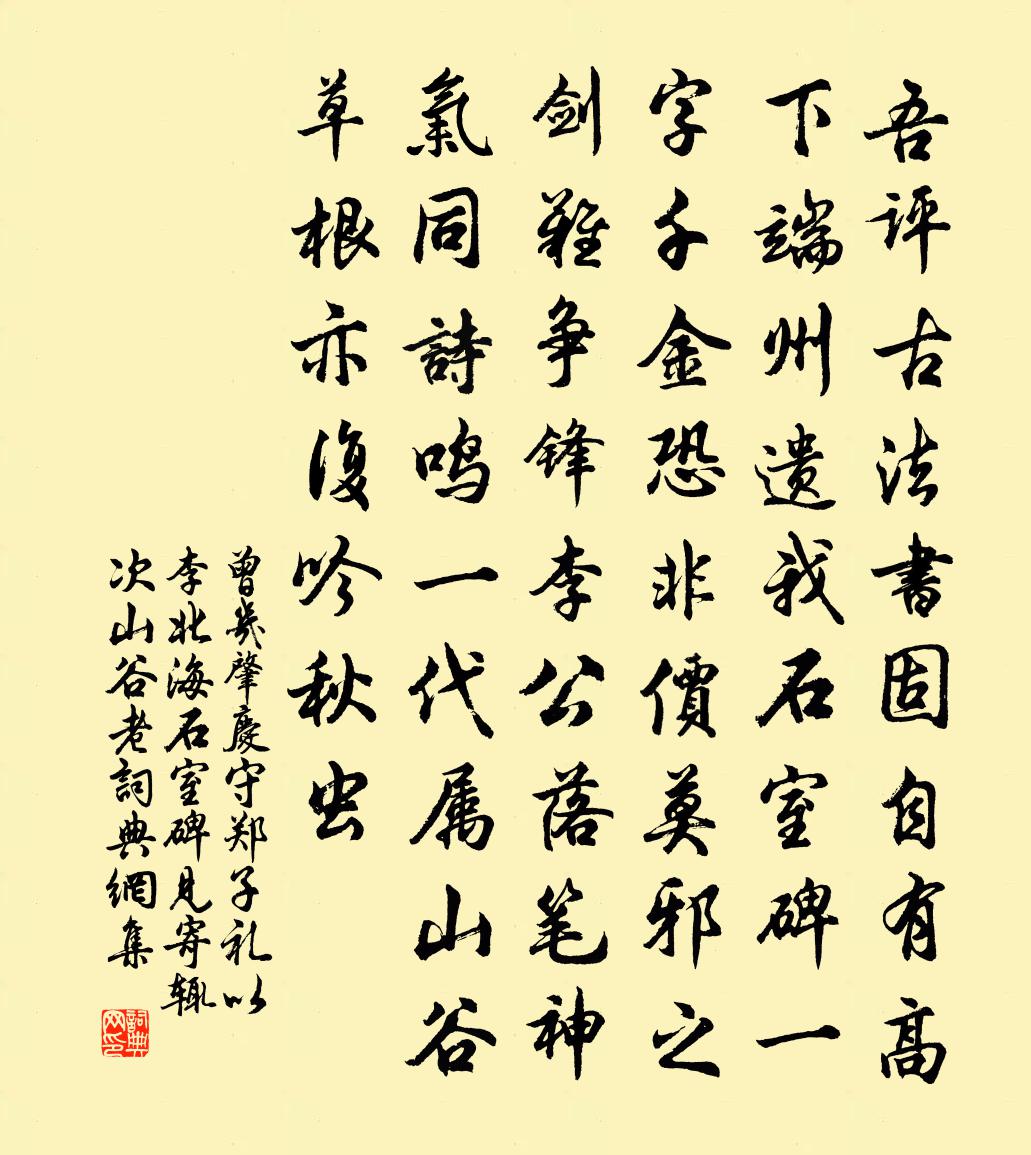 吾评古法書固自有高
下端州遗我石室碑一
字千金恐非價莫邪之
剑難争锋李公落笔神
氣同詩鸣一代属山谷
草根亦復吟秋虫
曾幾肇慶守郑子礼以
李北海石室碑見寄辄
次山谷老詞典網集
詞典网印